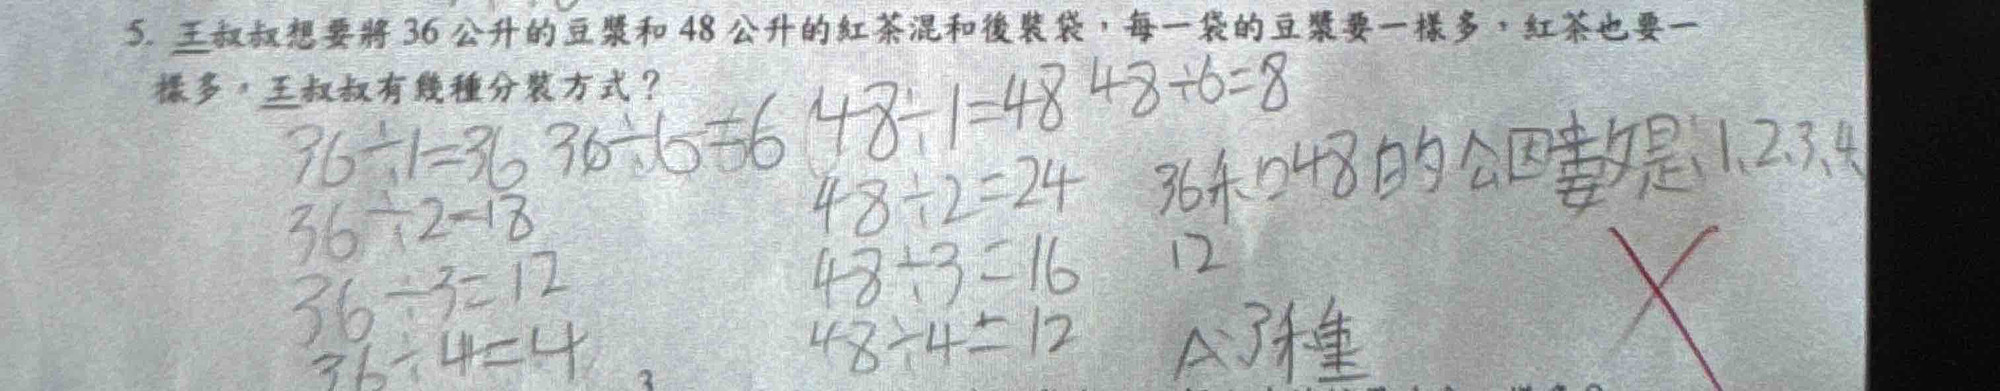 5. 王叔叔想要將 36 公升的豆漿和 48 公升的紅茶混和後裝袋，每一袋的豆漿要一樣多，紅茶也要一
樣多，王叔叔有幾種分裝方式？
36÷1=36 36÷6=6 48÷1=48 48÷6=8
36÷2=18 48÷2=24 36和48的公因數是:1、2、3、4、
36÷3=12 48÷3=16 12
36÷4=4 48÷4=12 A:3種